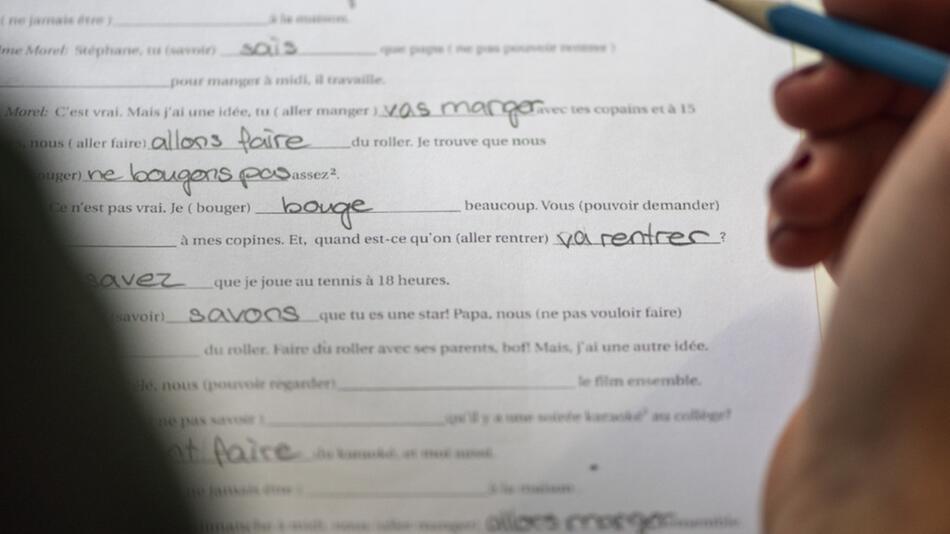 ( ne jamais être ) à la maison.
me Morel: Stéphane, tu (savoir) sais que papa ( ne pas pouvoir rentrer )
pour manger à midi, il travaille.
Morel: C'est vrai. Mais j'ai une idée, tu ( aller manger ) vas manger avec tes copains et à 15
nous ( aller faire) allons faire du roller. Je trouve que nous
ouger) ne bougons pas assez².
Ce n'est pas vrai. Je ( bouger) bouge beaucoup. Vous (pouvoir demander)
à mes copines. Et, quand est-ce qu'on (aller rentrer) va rentrer ?
savez que je joue au tennis à 18 heures.
(savoir) savons que tu es une star! Papa, nous (ne pas vouloir faire)
du roller. Faire du roller avec ses parents, bof! Mais, j'ai une autre idée.
nous (pouvoir regarder) le film ensemble.
ne pas savoir ) qu'il y a une soirée karaoké³ au collège?
nt faire du karaoké, et moi aussi.
ne jamais être ) à la maison.
dimanche à midi, nous (aller manger) allons manger ensemble.